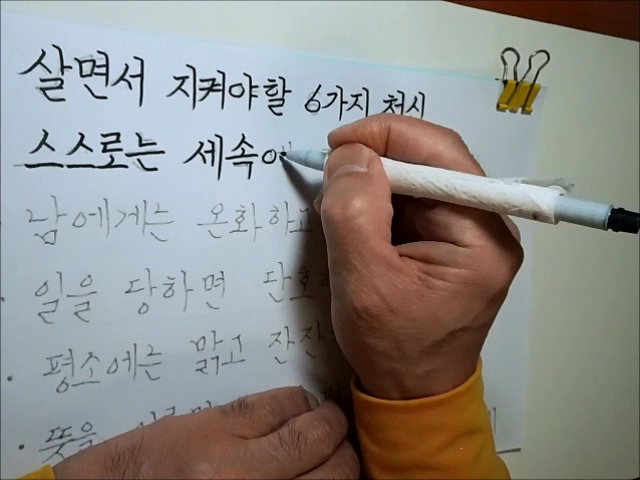 살면서 지켜야할 6가지 처시
스스로는 세속에
남에게는 온화하고
일을 당하면 단호
평소에는 맑고 잔잔
뜻을